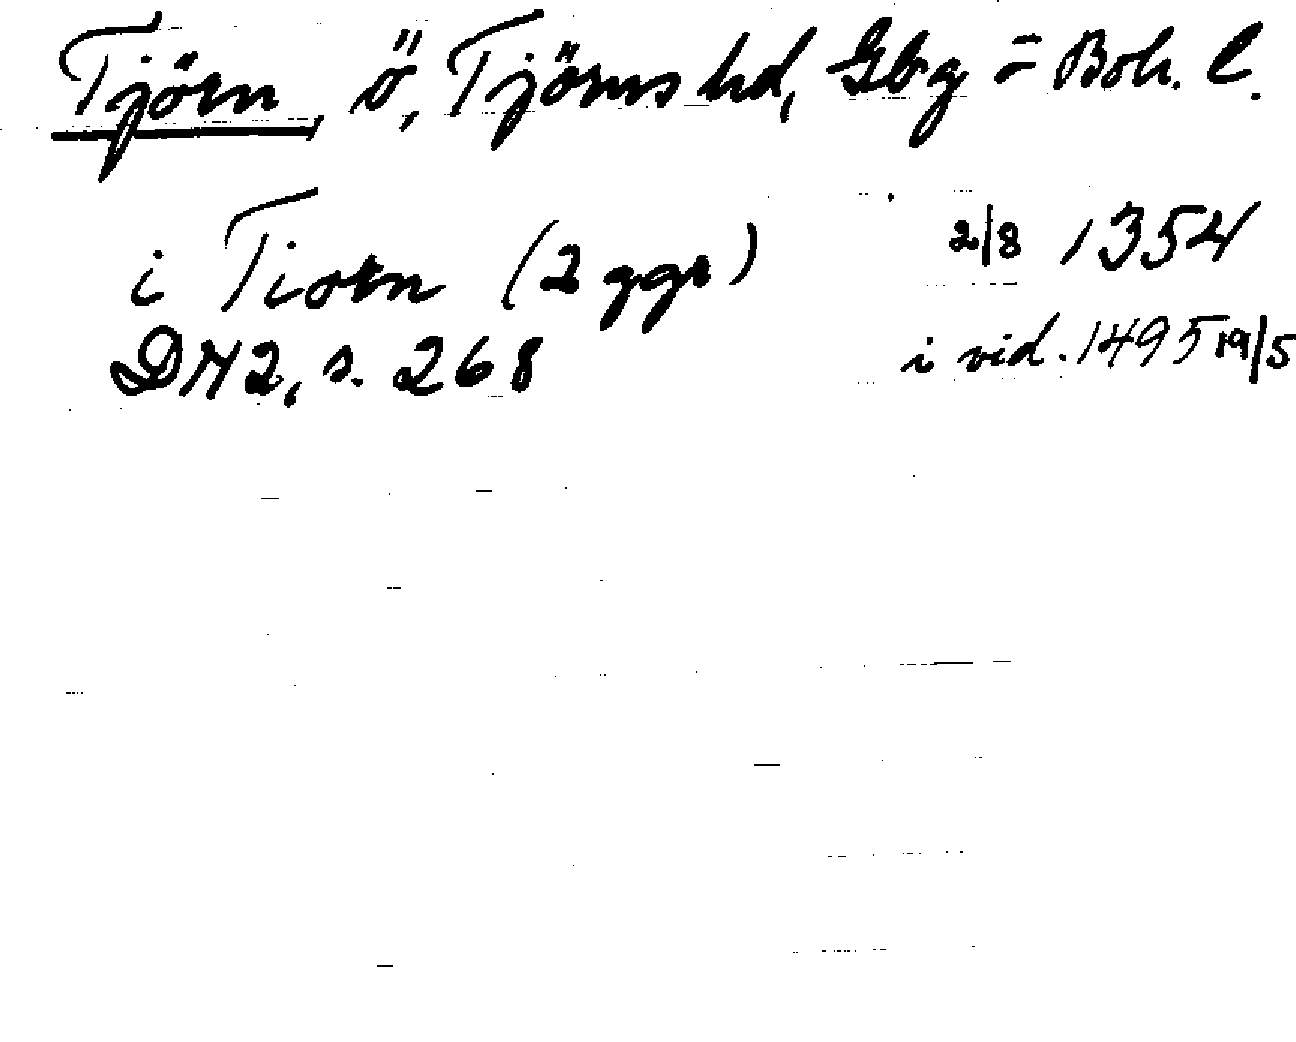 Tjörn, ö, Tjörns hd, Gbg o Boh. l.
i Tiorn (2 ggr) 2/8 1354
DN2, s. 268 i vid. 1495 19/5